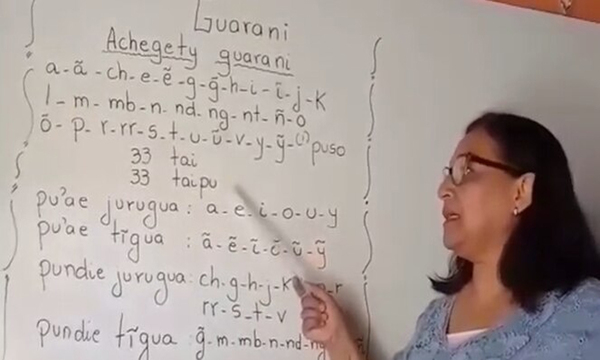 Guarani
Achegety guarani
a-ã-ch-e-ẽ-g-g̃-h-i-ĩ-j-K
l-m-mb-n-nd-ng-nt-ñ-o
õ-p-r-rr-s-t-u-ũ-v-y-ỹ-(') puso
33 tai
33 taipu
pu'ae jurugua: a-e-i-o-u-y
pu'ae tĩgua : ã-ẽ-ĩ-ĩ-ũ-ỹ
pundie jurugua: ch-g-h-j-K r
rr-s-t-v
pundie tĩgua g̃-m-mb-n-nd